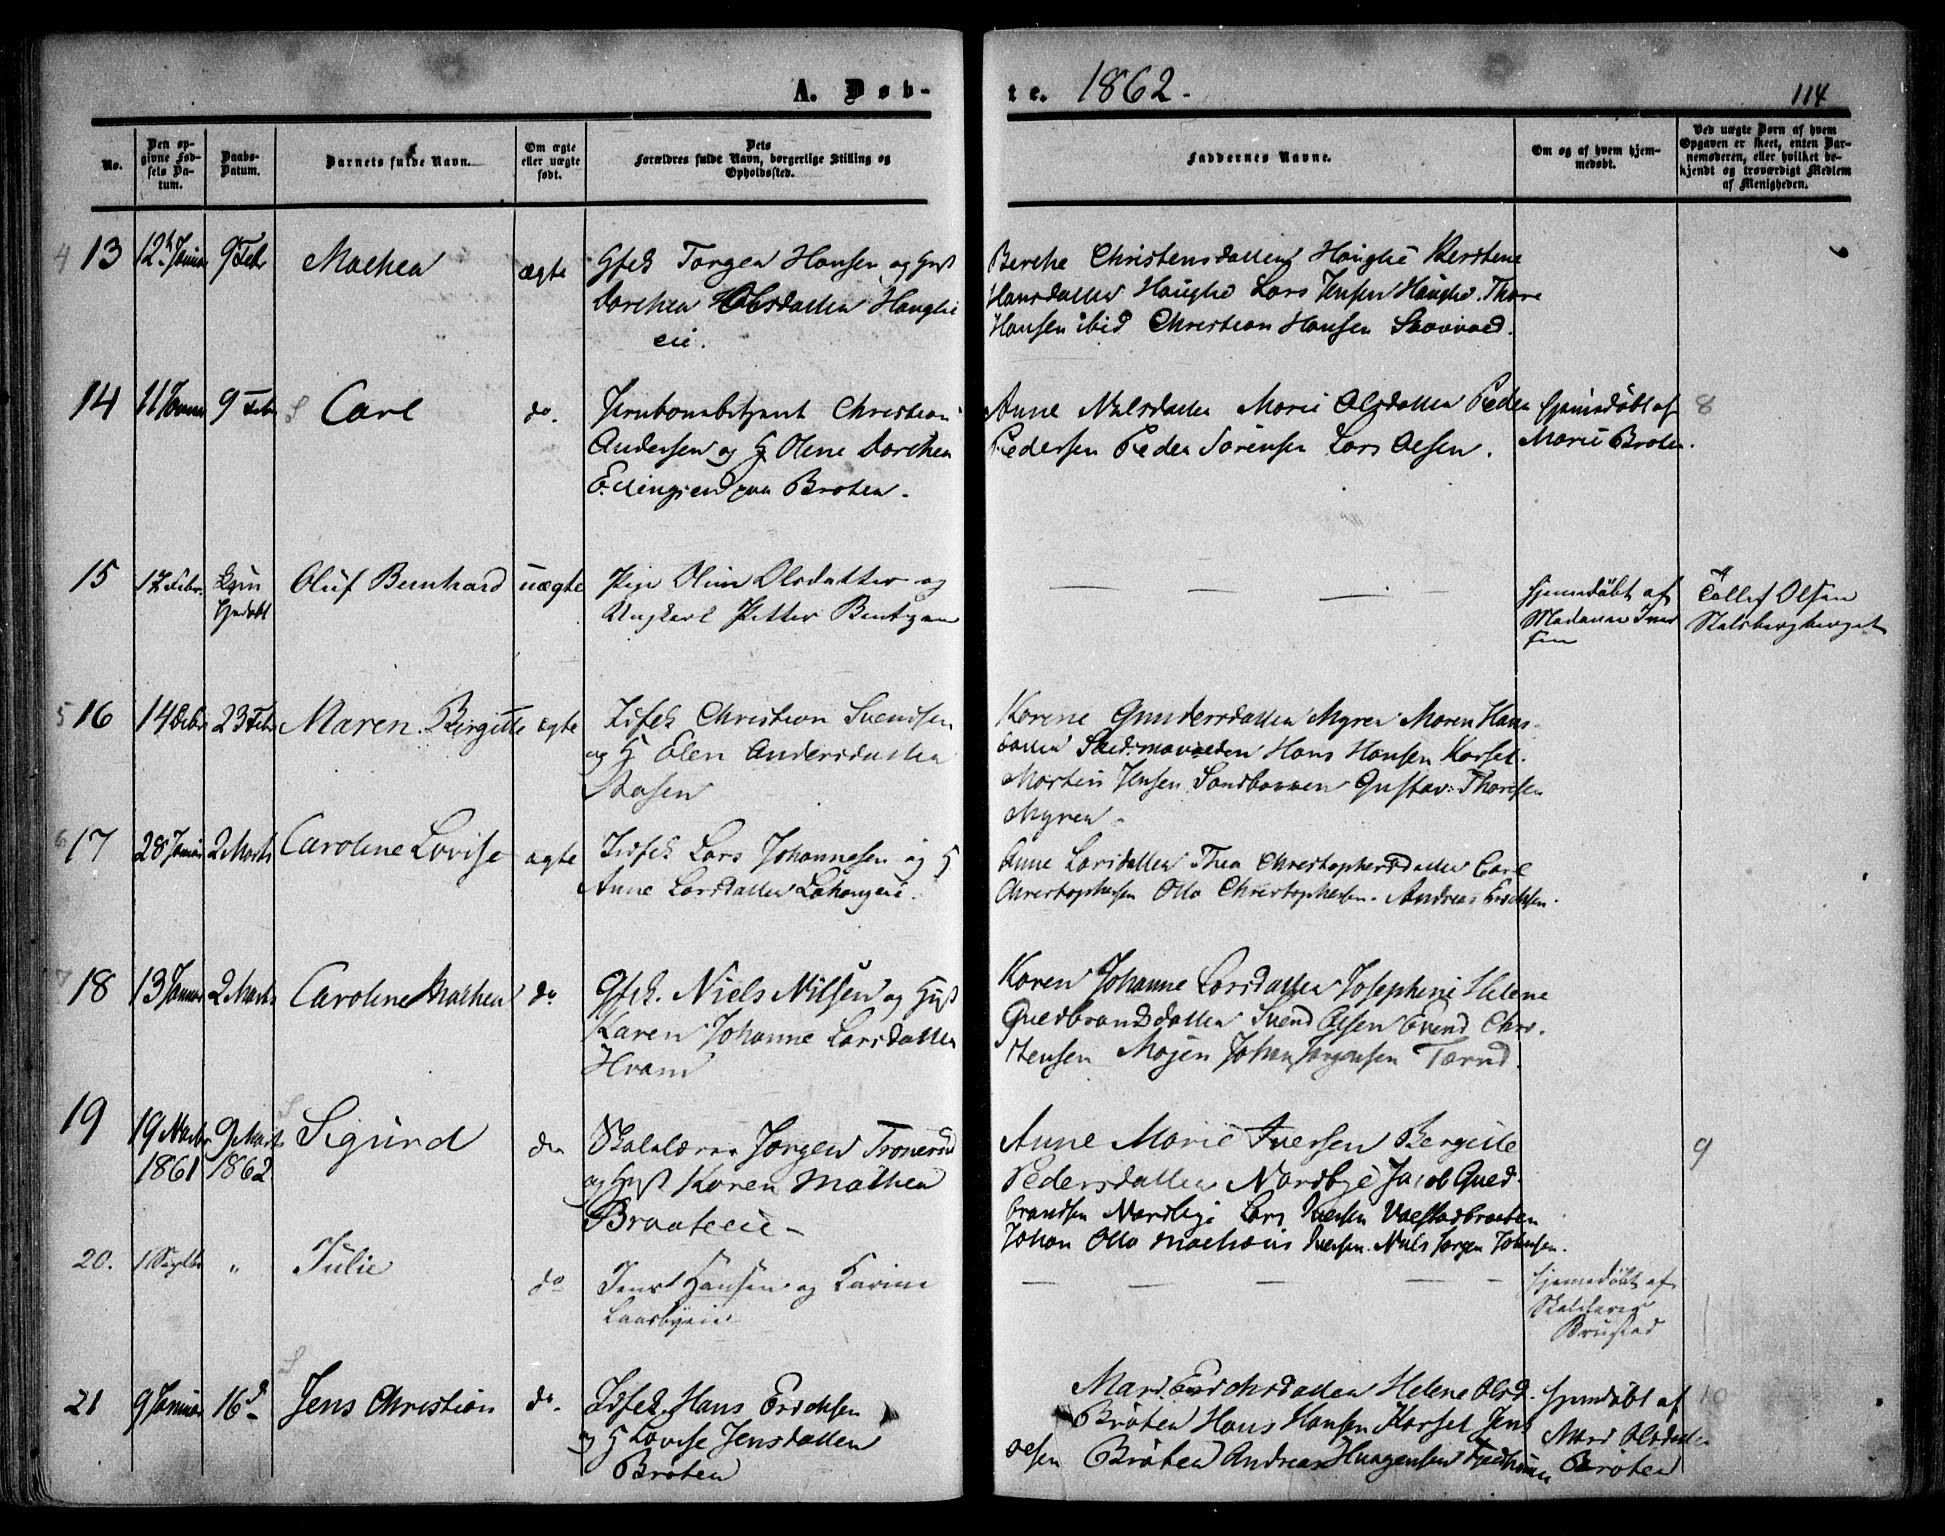 A. Døb-
te. 1862.
114
No.
Den op-
givne Fød-
sels Da-
tum.
Daabs-
Datum.
Barnets fulde Navn.
Om ægte
eller uægte
født.
Dets
Forældres fulde Navn, borgerlige Stilling og
Opholdssted.
Faddernes Navne.
Om og af hvem hjem-
medøbt.
Ved uægte Børn af hvem
Opgaven er skeet, enten Bar-
nemoderen, eller hvilket be-
kjendt og troværdigt Medlem
af Menigheden.
4 13 12t Januar 9 Febr Mathea ægte
Gfek Jørgen Hansen og Hust
Dorthea Olesdatter Haugli
eie.
Berthe Christensdatter Hauglie Kerstine
Hansdatter Hauglie Lars Jensen Hauglie. Thore
Hansen ibid Christian Hansen
14 11 Januar 9 Febr S Carl do.
Jernbanebetjent Christian
Andersen og H Oline Dorthea
Ellingsen paa Braten.
Anne Nilsdatter Marie Olsdatter Peder
Pedersen Peder Sørensen Lars Olsen.
Hjemmedøbt af
Marie Braten.
8
15 17 Febr. Hjdøbt Oluf Bernhard uægte
Pige Oline Olsdatter og
Ungkarl Petter Bentsen
Hjemmedøbt af
Madame Iver
sen
Tollef Olsen
Stalsbergberget
5 16 14 Debr 23 Febr Maren Birgitte ægte
Isfek Christian Svendsen
og H Elen Andersdatter
Aasen
Karine Gundersdatter Myrer Maren Hans-
datter Hans Hansen Korset.
Martin Jensen Sandbakken Gustav Thoresen
Myren.
6 17 28 Januar 2 Marts Caroline Lovise ægte
Isfek Lars Johannesen og H
Anne Larsdatter
Anne Larsdatter Thea Christophersdatter Carl
Christophersen Otto Christophersen. Andreas Erichsen.
7 18 13 Januar 2 Marts Caroline Mathea do
Gfek. Niels Nilsen og Hust
Karen Johanne Larsdatter
Hvam
Karen Johanne Larsdatter Josephine Helene
Guldbrandsdatter Svend Olsen Evend Chri-
stensen Mojen Johan Jørgensen Tærud.
19 19 Novbr 9 Marts S Sigurd do
1861 1862
Skolelærer Jørgen Tronerud
og Hust Karen Mathea
Braateeie
Anne Marie Iversen Bergitte
Pedersdatter Nordbye Jacob Guld-
brandsen Nordbye Lars Iversen
Johan Otto Mathæus Iversen. Niels Jørgen Johnsen.
9
20. 1 " Julie do
Jens Hansen og Karine
Laasbyeie
Hjemmedøbt af
Skolelærer
Brustad
21 9 Januar 16d S Jens Christian do.
Isfek. Hans Erichsen
og H Lovise Jensdatter
Bråten
Mari Erichsdatter Helene Olsd.
Bråten Hans Hansen Korset Jens
Olsen Bråten Andreas Huagensen Fjeldhuun
Hjemdøbt af
Mari Olsdatter
Bråten
10